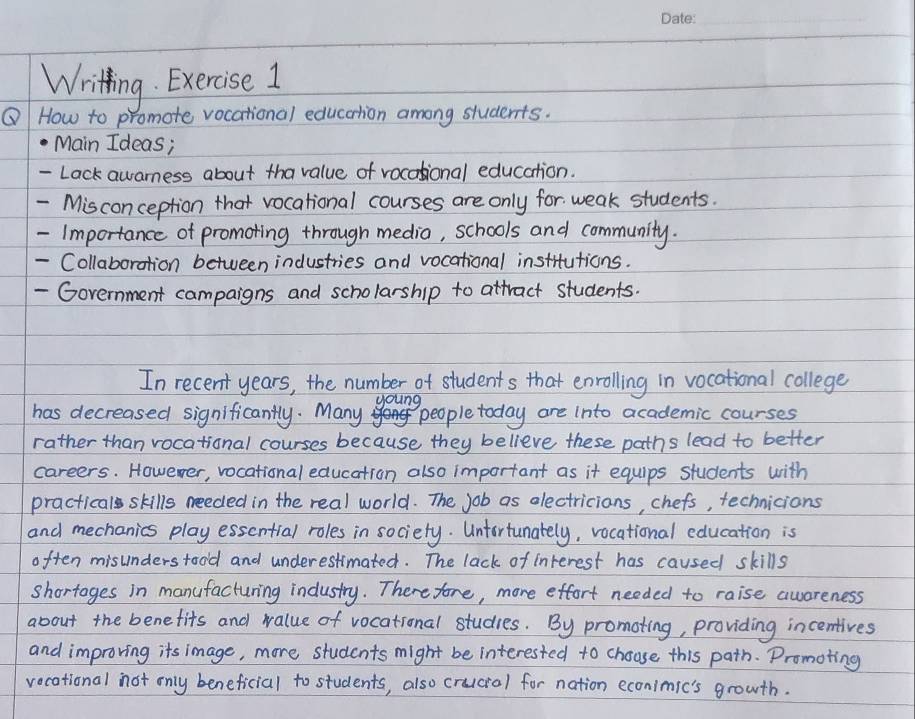 Date:
Writing Exercise 1
Q How to promote vocational education among students.
• Main Ideas;
- Lack awarness about tha value of vocational education.
- Misconception that vocational courses are only for weak students.
- Importance of promoting through media, schools and community.
- Collaboration between industries and vocational institutions.
- Government campaigns and scholarship to attract students.
In recent years, the number of students that enrolling in vocational college
young
has decreased significantly. Many people today are into academic courses
rather than vocational courses because they believe these paths lead to better
careers. However, vocational education also important as it equips students with
practicals skills needed in the real world. The job as electricians, chefs, technicians
and mechanics play essential roles in society. Unfortunately, vocational education is
often misunderstood and underestimated. The lack of interest has caused skills
shortages in manufacturing industry. Therefore, more effort needed to raise awareness
about the benefits and value of vocational studies. By promoting, providing incentives
and improving its image, more students might be interested to choose this path. Promoting
vocational not only beneficial to students, also crucial for nation econimic's growth.